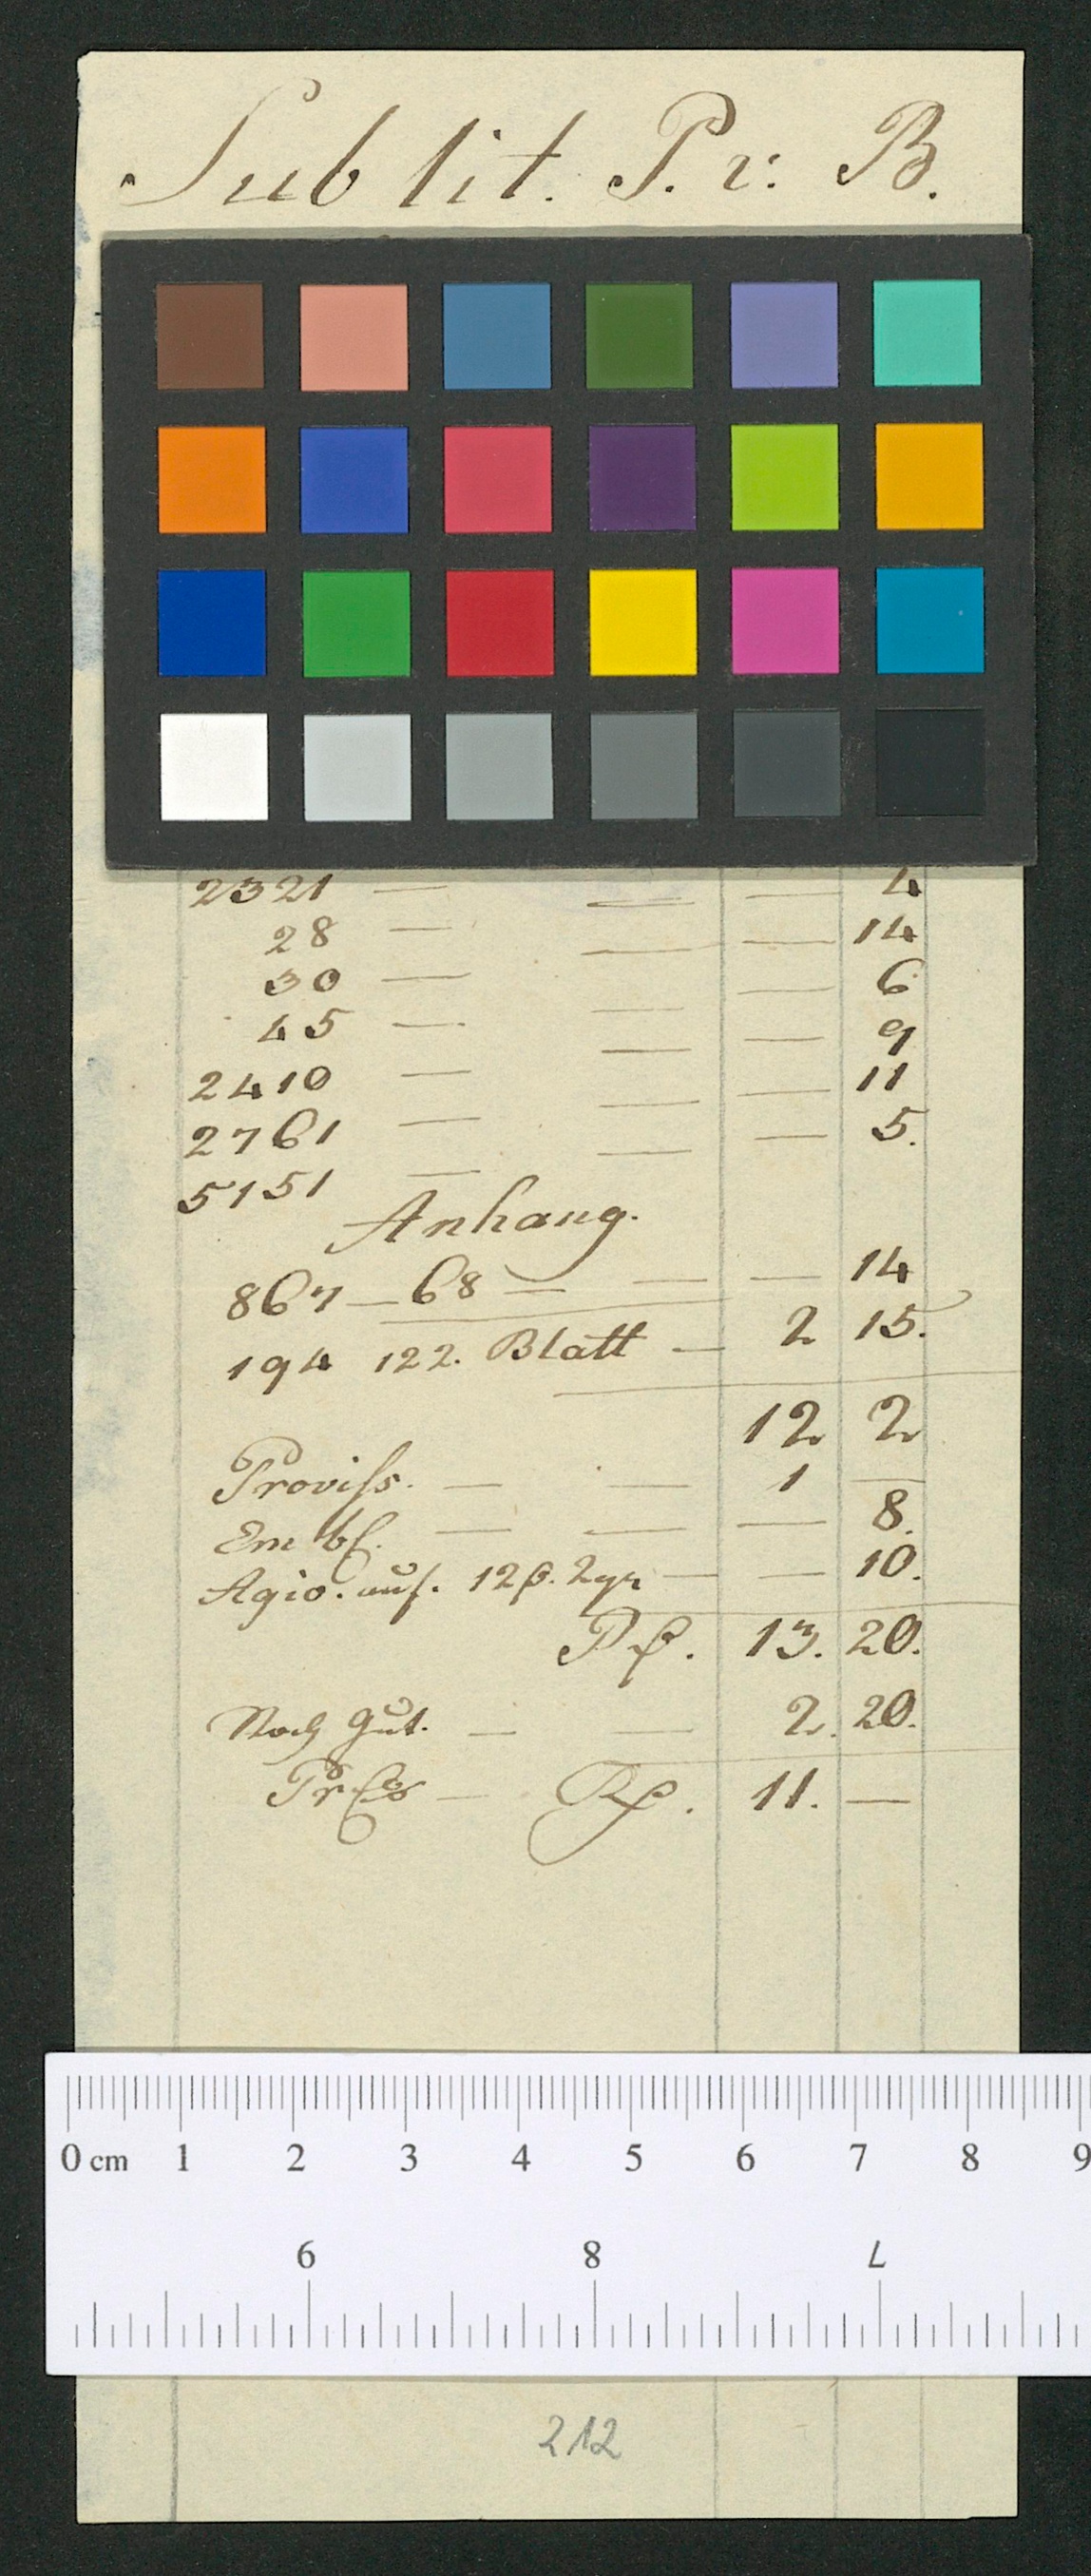 Sub lit. P. v: B.
2321 — — — 4
28 — — — 14
30 — — — 6
45 — — — 9
2410 — — — 11
2761 — — — 5.
5151 —
Anhang.
867 — 68 — — — 14
194 122. Blatt — 2 15.
12 2
Proviſs. — — 1 —
Em — — — 8.
Agio. auf. 12 2gr — — 10.
13. 20.
Noch Gut. — — 2. 20.
— 11. —
0 cm 1 2 3 4 5 6 7 8 9
9 8 7
212